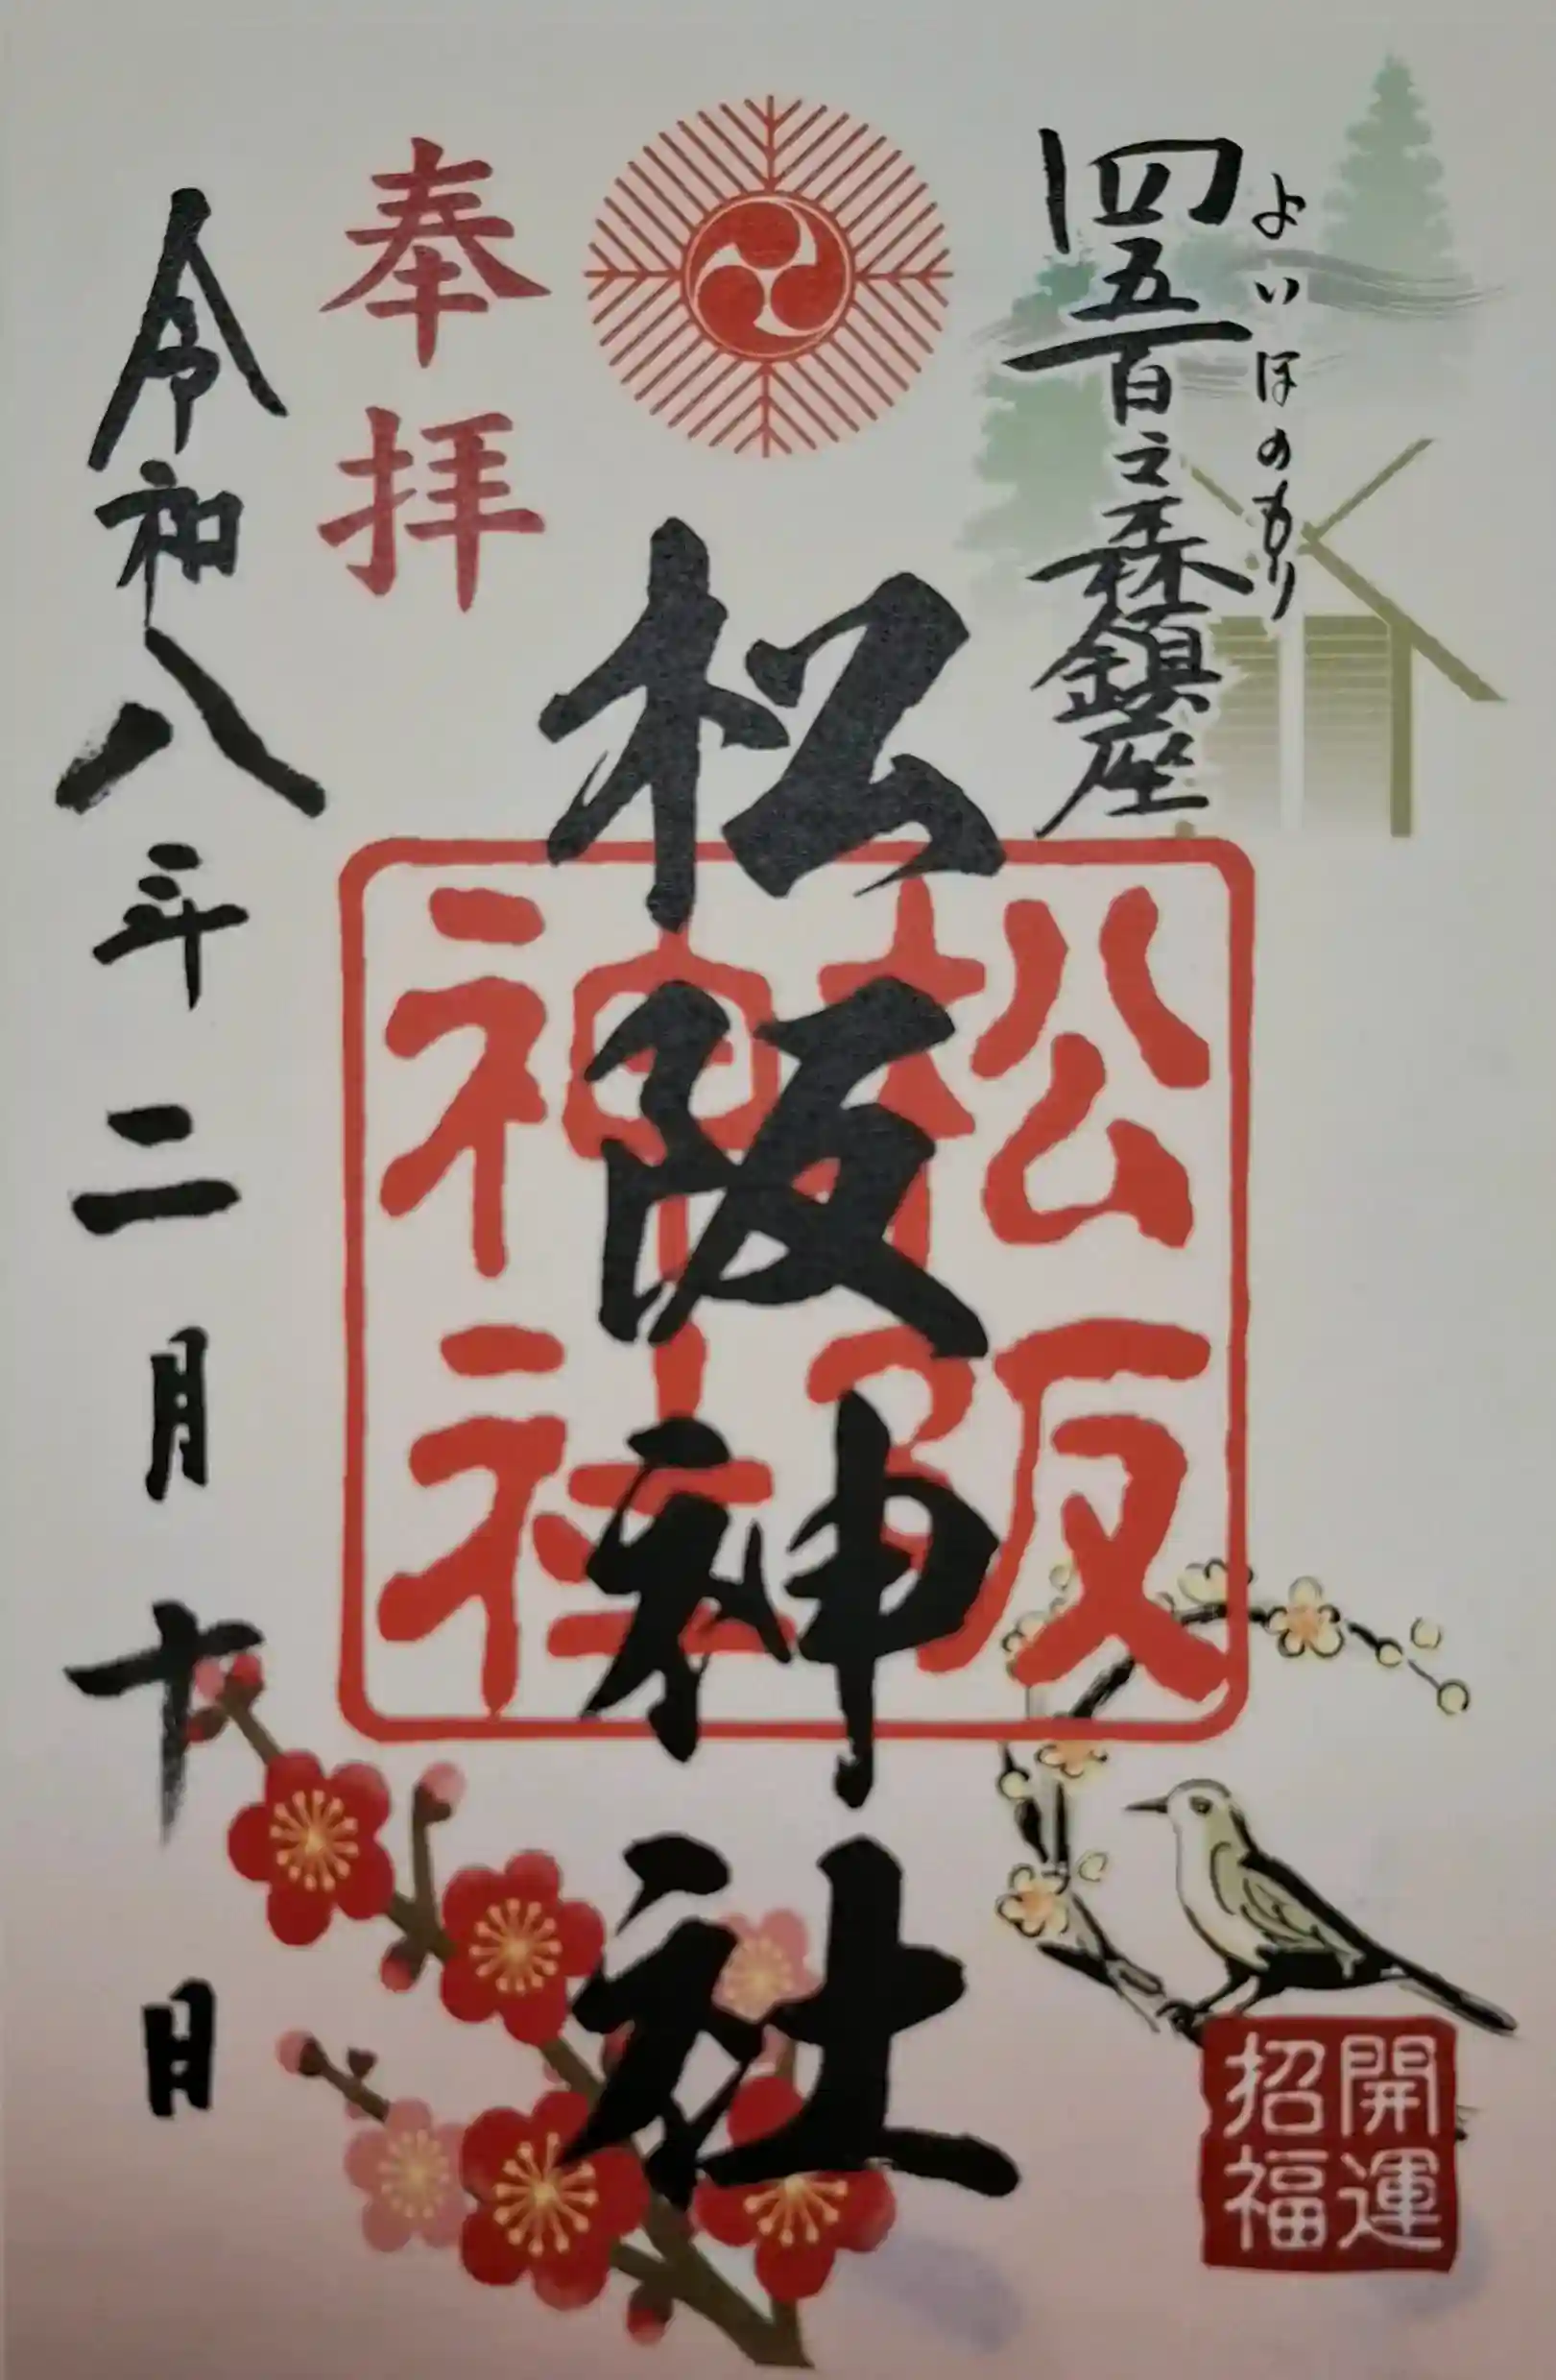 よいほのもり
四五百之森鎮座
松阪神社
松阪
神社
奉拝
令和八年二月十日
開運
招福